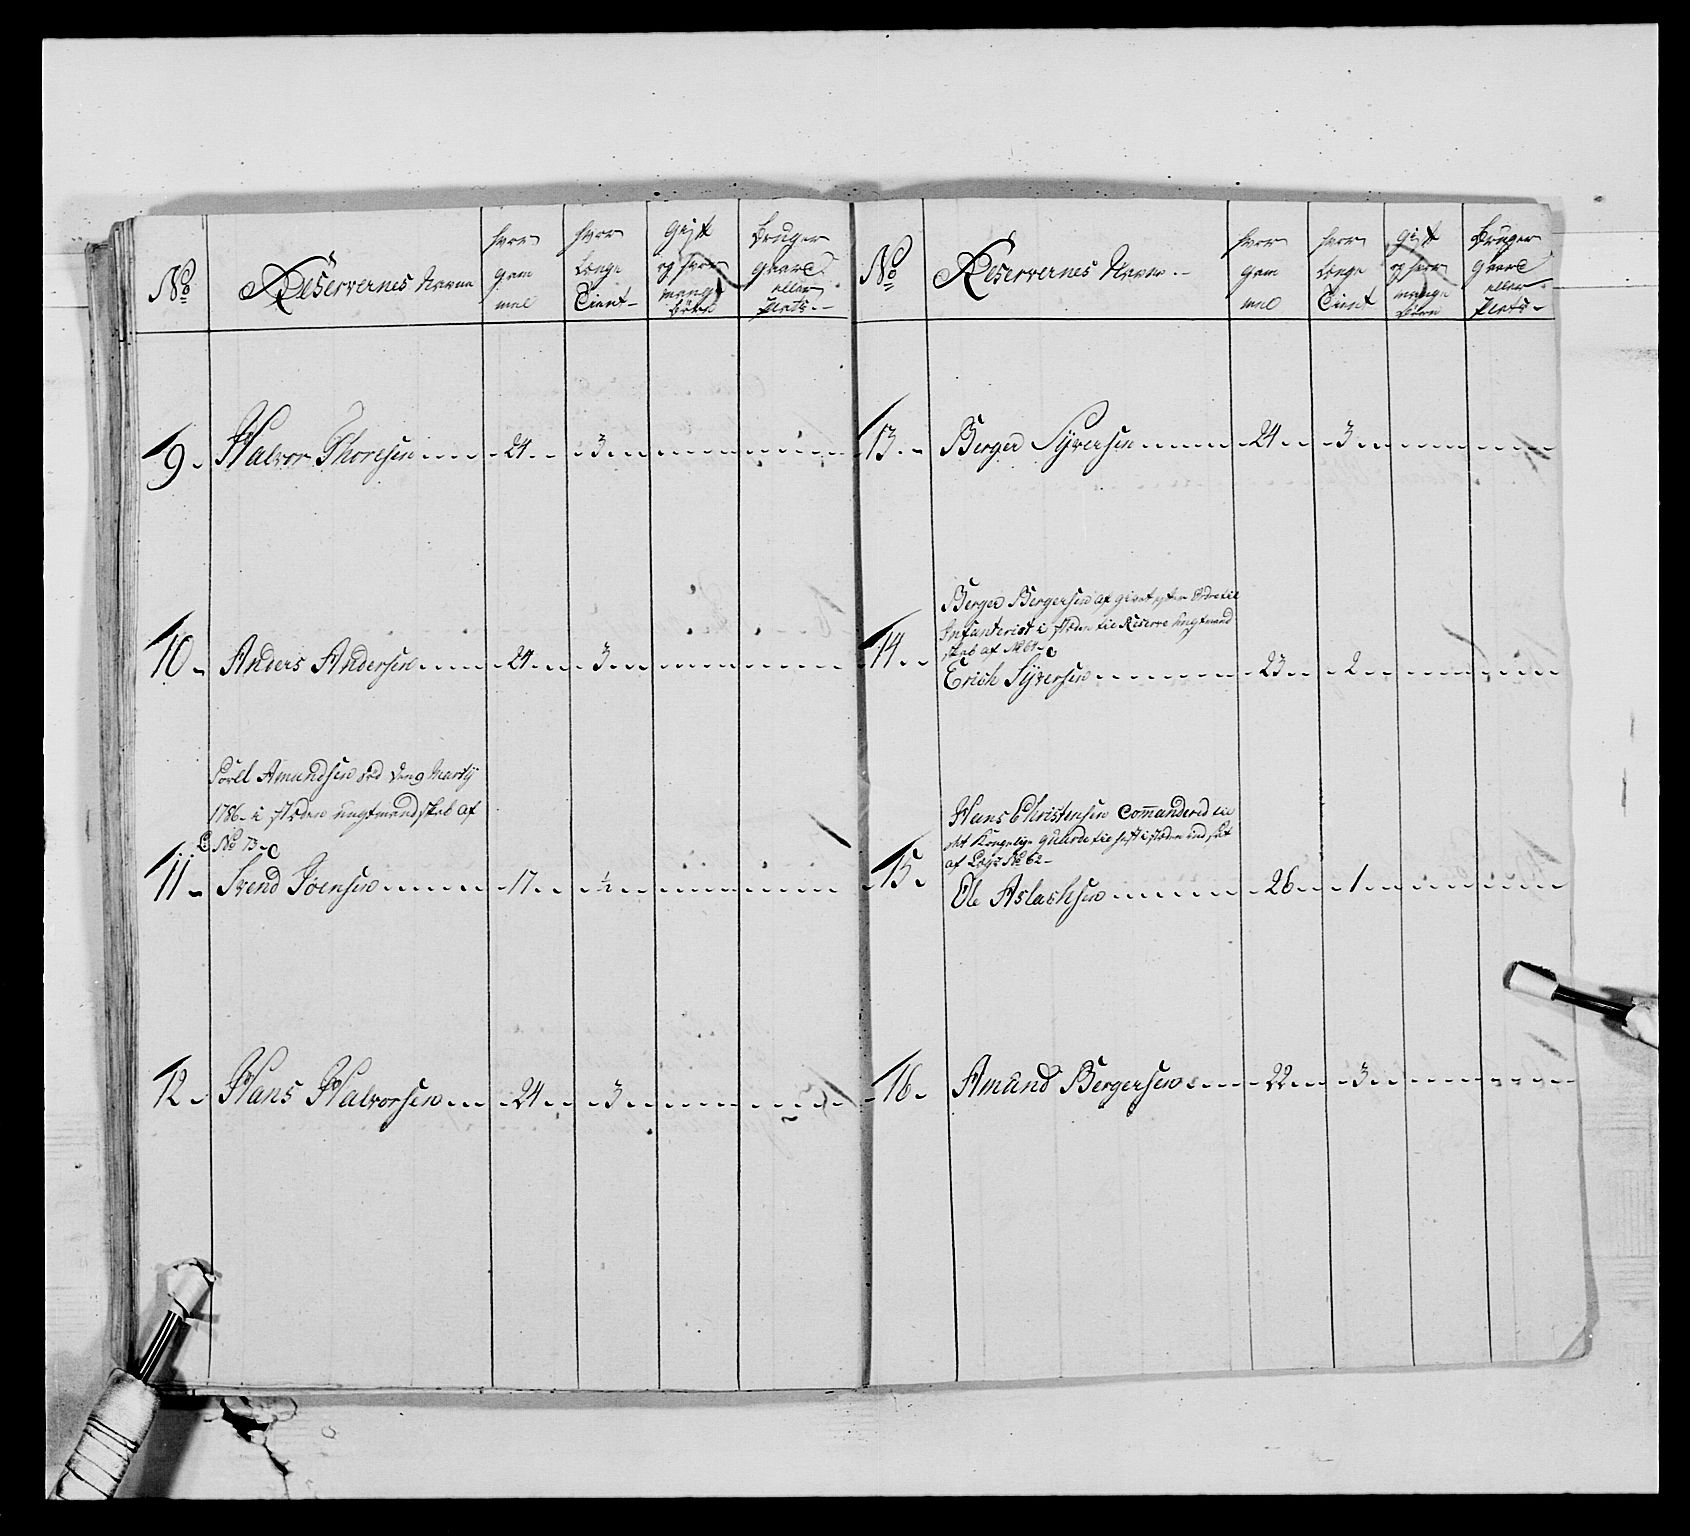 No
Reservernes Navne
hvor
gam
mel
hvor
Længe
Tient
Gift
og hvor
mange
børn
Bruger
gaard
eller
Plads
9 Halvor Thoresen 24 3
10 Anders Andersen 24 3
Poul Amundsen død den 9 Martÿ
1786 i stæden ungtmandskab af
L No 73
11 Svend Joensen 17 ½
12 Hans Halvorsen 24 3
No
Reservernes Navne
hvor
gam
mel
hvor
Længe
Tient
Gift
og hvor
mange
børn
Bruger
gaard
eller
Plads
13 Berger Syversen 24 3
Berger Bergersen afgivet efter Ordre til
Infanterist i stæden til Reserve ungtmand
skab af No 61
14 Erich Syversen 23 2
Hans Christensen Commanderet til
det Kongelige Guarde til hest i stæden ind sat
af No 62
15 Ole Aslachsen 26 1
16 Amund Bergersen 22 3